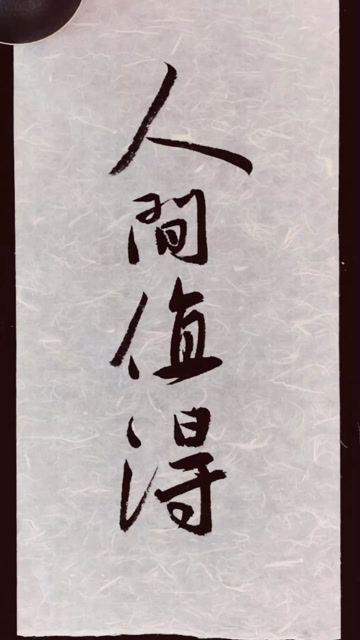 人間值得